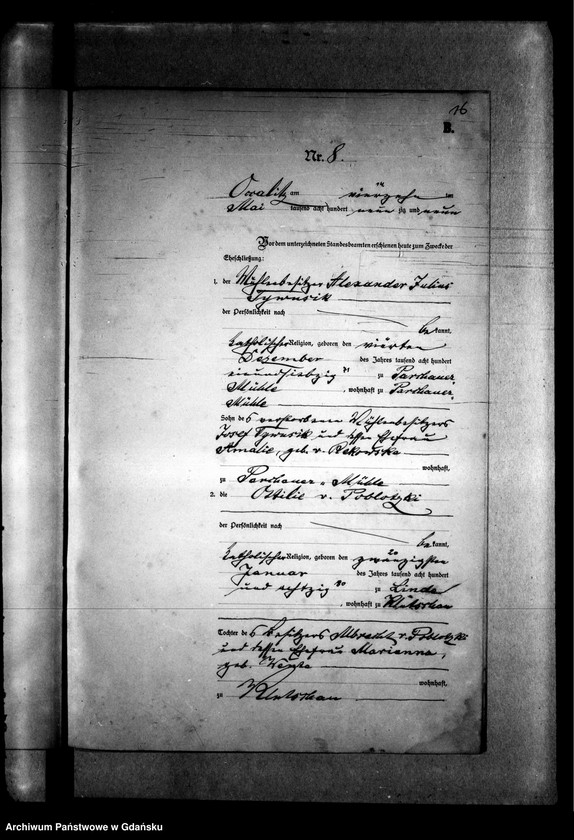 16
B.
Nr. 8.
am vierzehn ten
Mai tausend acht hundert neun zig und neun
Vor dem unterzeichneten Standesbeamten erschienen heute zum Zwecke der
Eheschließung:
1. der Mühlenbesitzer Alexander Julius
der Persönlichkeit nach
be kannt,
katholischer Religion, geboren den vierten
Dezember des Jahres tausend acht hundert
siebzig zu Parchauer
Mühle , wohnhaft zu Parchauer
Mühle
Sohn des verstorbenen Mühlenbesitzers
Josef und dessen Ehefrau
Amalie, geb. v.
wohnhaft,
zu Parchauer Mühle
2. die Ottilie v. Poblotzki
der Persönlichkeit nach
be kannt,
katholischer Religion, geboren den zwanzigsten
Januar des Jahres tausend acht hundert
und achtzig 80 zu Linde
, wohnhaft zu Klutschau
Tochter des Besitzers Albrecht v. Poblotzki
und dessen Ehefrau Marianna,
geb.
wohnhaft,
zu Klutschau
Archiwum Państwowe w Gdańsku